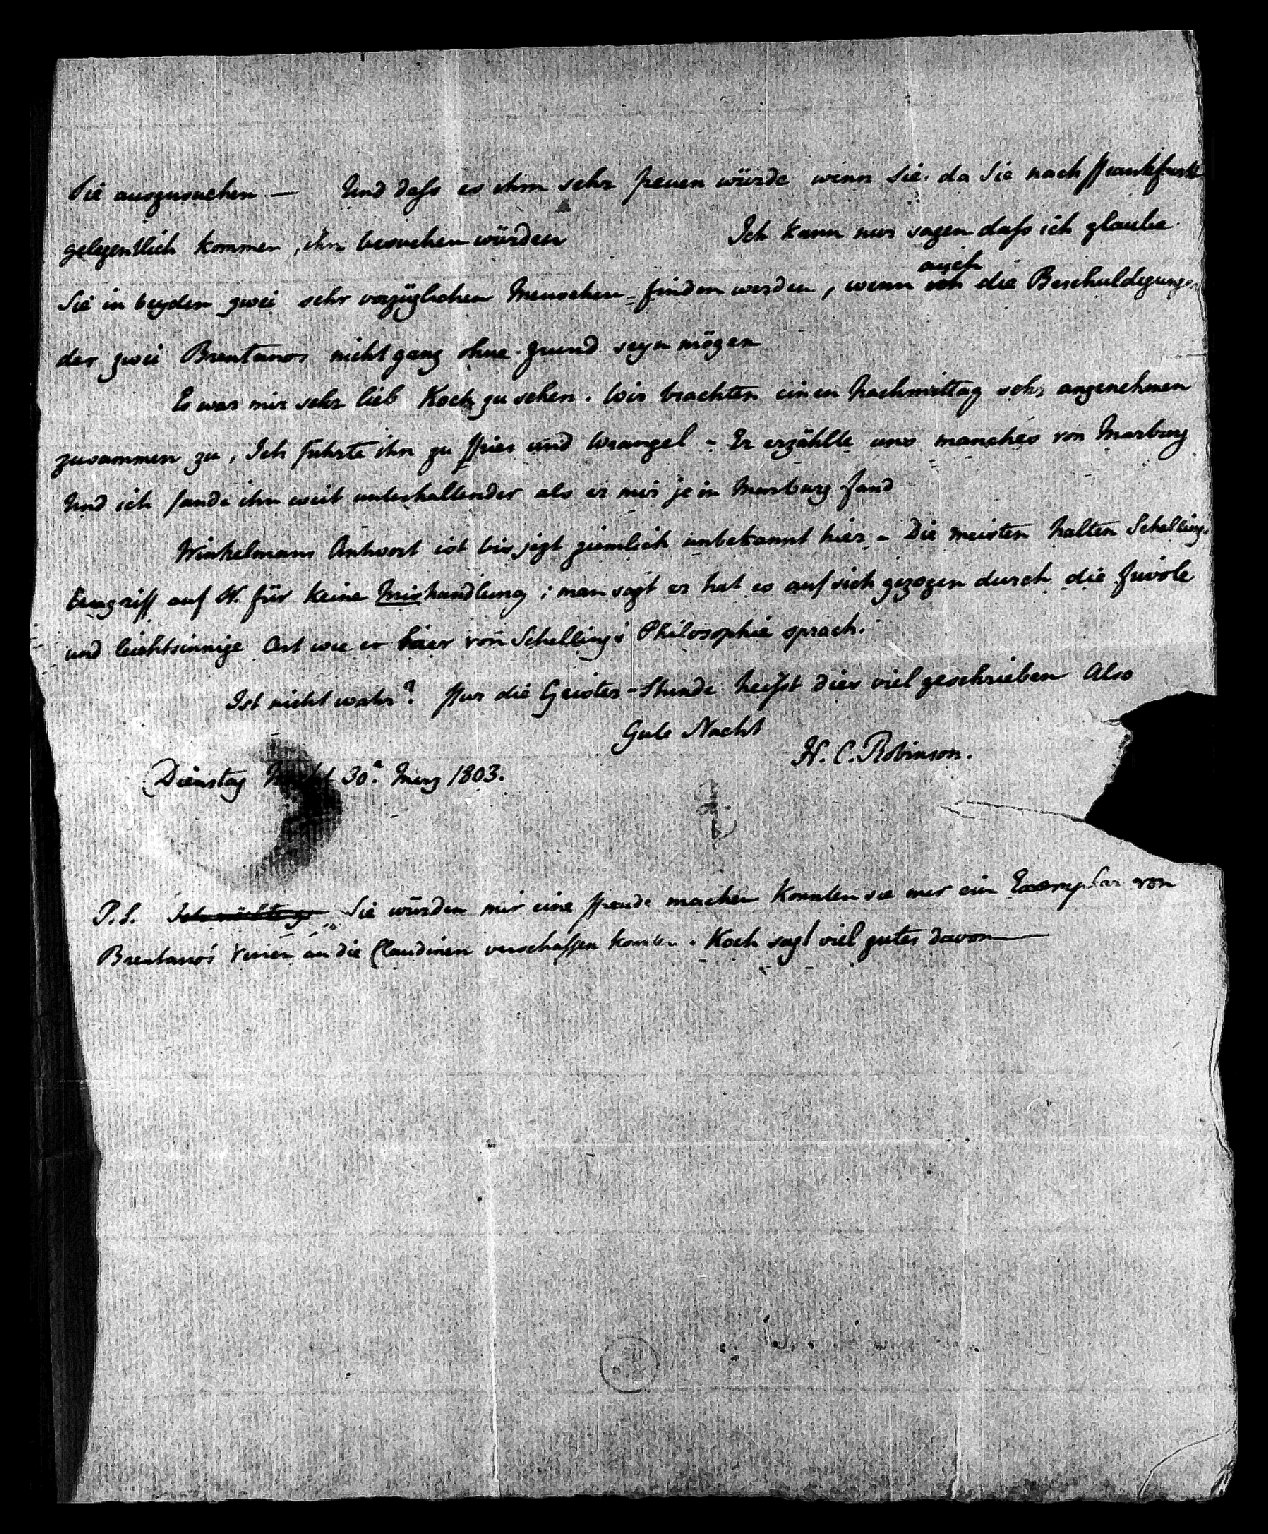 Sie auszusuchen — Und dass es ihm sehr freuen würde wenn Sie da Sie nach Frankfurt
gelegentlich kommen, ihn besuchen würden Ich kann nur sagen dass ich glaube
Sie in beyden zwei sehr vorzüglichen Menschen finden werden, wenn auch die Beschuldigungen
der zwei Brentanos nicht ganz ohne grund seyn mögen
Es war mir sehr lieb Koch zu sehen. Wir brachten einen Nachmittag sehr angenehmen
zusammen zu, Ich fuhrte ihn zu Fries und Wrangel – Er erzählte uns manches von Marburg
Und ich fande ihn weit unterhaltender als er mir je in Marburg fand
Winkelmans Antwort ist bis jezt ziemlich unbekannt hier – Die meisten halten Schellings
angriff auf W. für keine Mishandlung; man sagt er hat es auf sich gezogen durch die frivole
und leichtsinnige Art wie er hier von Schelling's Philosophie sprach.
Ist nicht wahr? Fur die Geister-Stunde heisst dies viel geschrieben Also
Gute Nacht
H. C. Robinson.
Dienstag 30. März 1803.
P.S. Sie würden mir eine Freude machen konnten sie mir ein Exemplar von
Brentano's Versen an die Claudinen verschaffen konten. Koch sagt viel gutes davon —